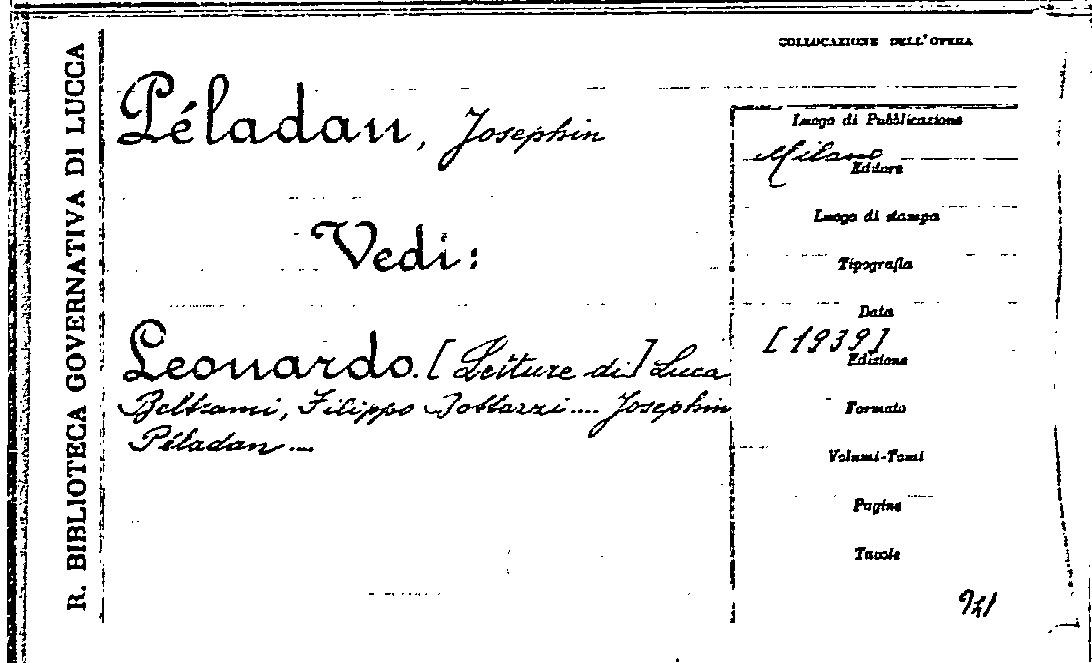 R. BIBLIOTECA GOVERNATIVA DI LUCCA
COLLOCAZIONE DELL'OPERA
Péladan, Josephin
Vedi:
Leonardo. [Letture di] Luca
Beltrami, Filippo Bottazzi .... Josephin
Péladan ....
Luogo di Pubblicazione
Milano
Editore
Luogo di stampa
Tipografia
Data
[1939]
Edizione
Formato
Volumi-Tomi
Pagine
Tavole